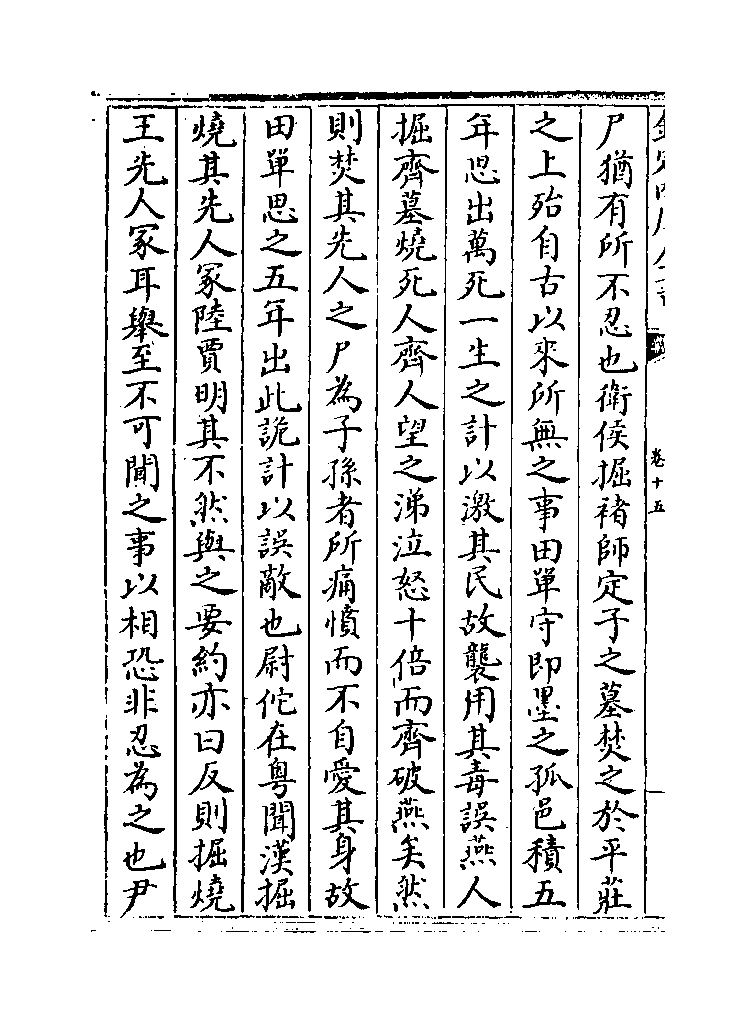 尸猶有所不忍也衛侯掘褚師定子之墓焚之於平莊
之上殆自古以來所無之事田單守即墨之孤邑積五
年思出萬死一生之計以激其民故襲用其毒誤燕人
掘齊墓燒死人齊人望之涕泣怒十倍而齊破燕矣然
則焚其先人之尸為子孫者所痛憤而不自愛其身故
田單思之五年出此詭計以誤敵也尉佗在粤聞漢掘
燒其先人冢陸賈明其不然與之要約亦曰反則掘燒
王先人冢耳舉至不可聞之事以相恐非忍為之也尹
卷十五